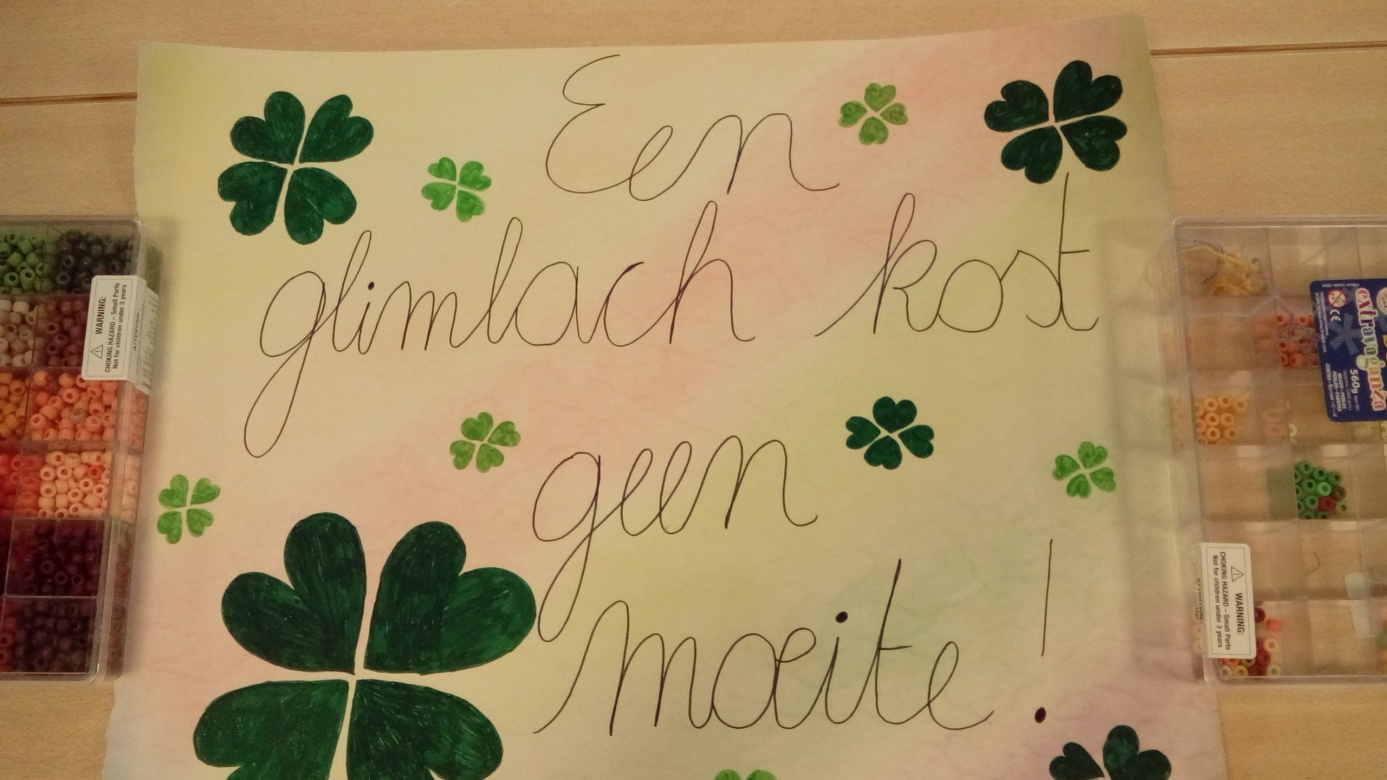 Een
glimlach kost
geen
moeite!
WARNING:
CHOKING HAZARD – Small Parts
Not for children under 3 years
extravaganza
560g
WARNING:
CHOKING HAZARD – Small Parts
Not for children under 3 years